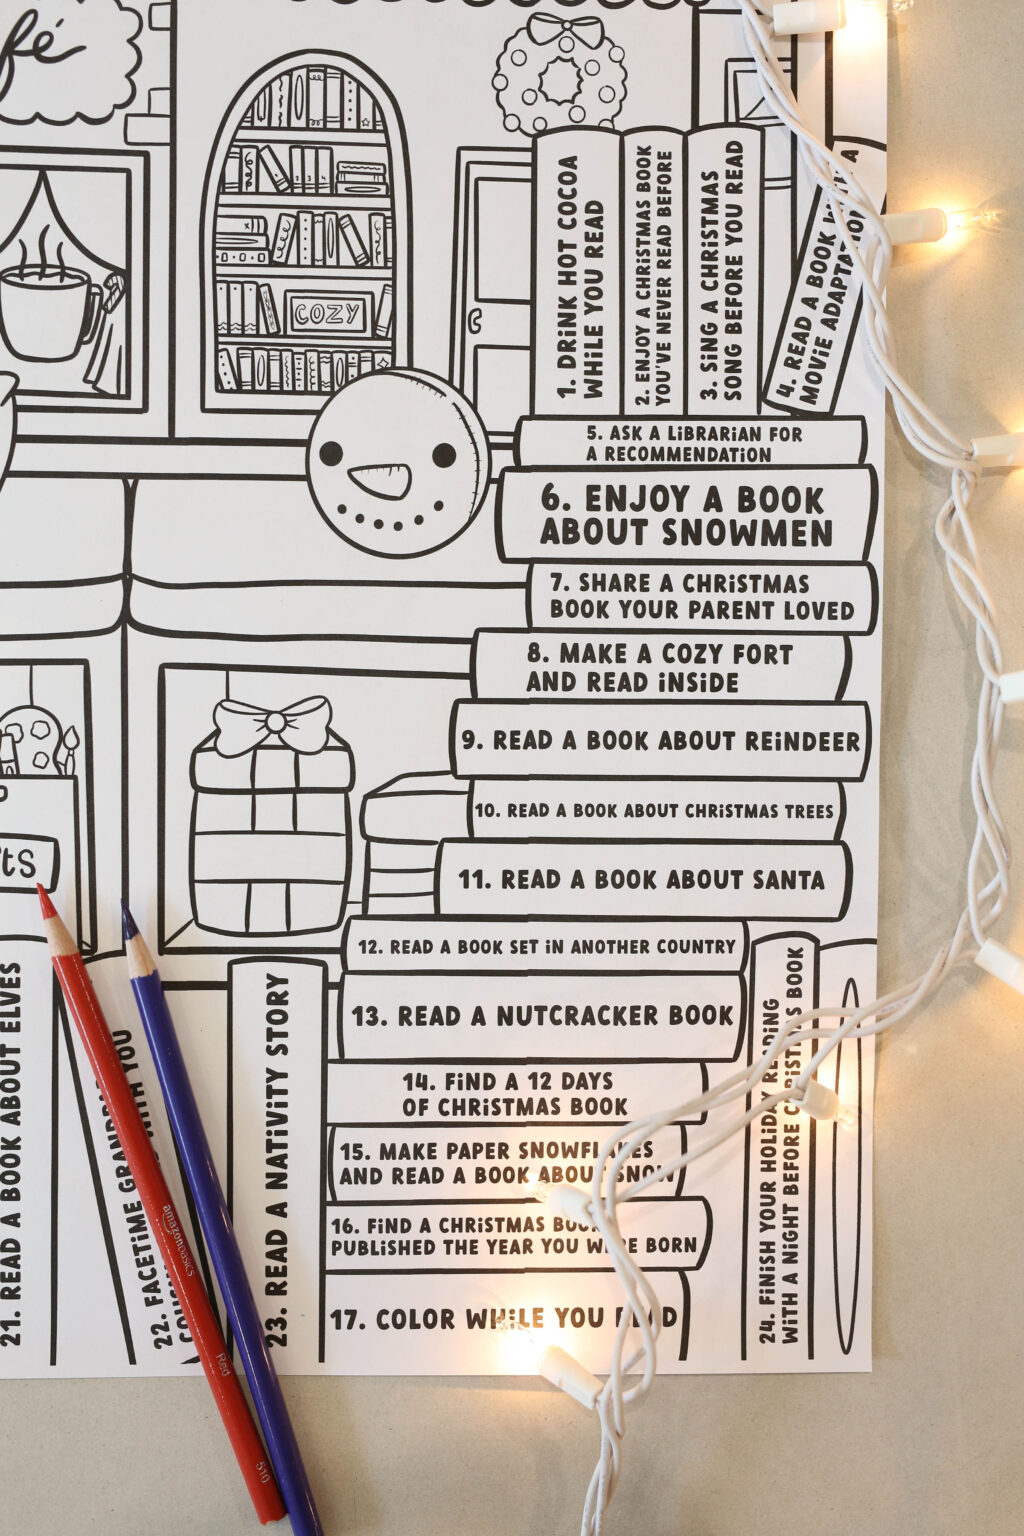 fé
COZY
1. DRINK HOT COCOA
WHILE YOU READ
2. ENJOY A CHRISTMAS BOOK
YOU'VE NEVER READ BEFORE
3. SING A CHRISTMAS
SONG BEFORE YOU READ
4. READ A BOOK WITH A
MOVIE ADAPTATION
5. ASK A LIBRARIAN FOR
A RECOMMENDATION
6. ENJOY A BOOK
ABOUT SNOWMEN
7. SHARE A CHRISTMAS
BOOK YOUR PARENT LOVED
8. MAKE A COZY FORT
AND READ INSIDE
9. READ A BOOK ABOUT REINDEER
10. READ A BOOK ABOUT CHRISTMAS TREES
11. READ A BOOK ABOUT SANTA
12. READ A BOOK SET IN ANOTHER COUNTRY
13. READ A NUTCRACKER BOOK
14. FIND A 12 DAYS
OF CHRISTMAS BOOK
15. MAKE PAPER SNOWFLAKES
AND READ A BOOK ABOUT SNOW
16. FIND A CHRISTMAS BOOK
PUBLISHED THE YEAR YOU WERE BORN
17. COLOR WHILE YOU READ
ts
21. READ A BOOK ABOUT ELVES
22. FACETIME
WITH YOU
23. READ A NATIVITY STORY
24. FINISH YOUR HOLIDAY READING
WITH A NIGHT BEFORE CHRISTMAS BOOK
amazonbasics
Red
510